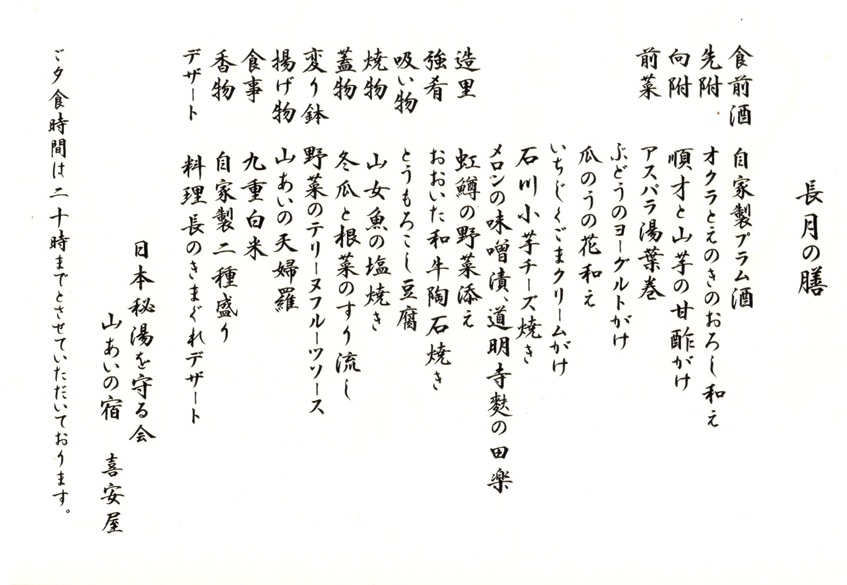 長月の膳
食前酒 自家製プラム酒
先附 オクラとえのきのおろし和え
向附 順才と山芋の甘酢がけ
前菜 アスパラ湯葉巻
ぶどうのヨーグルトがけ
瓜のうの花和え
いちじくごまクリームがけ
石川小芋チーズ焼き
メロンの味噌漬、道明寺麩の田楽
造里 虹鱒の野菜添え
強肴 おおいた和牛陶石焼き
吸い物 とうもろこし豆腐
焼物 山女魚の塩焼き
蓋物 冬瓜と根菜のすり流し
変り鉢 野菜のテリーヌフルーツソース
揚げ物 山あいの天婦羅
食事 九重白米
香物 自家製二種盛り
デザート 料理長のきまぐれデザート
日本秘湯を守る会
山あいの宿 喜安屋
ご夕食時間は二十時までとさせていただいております。